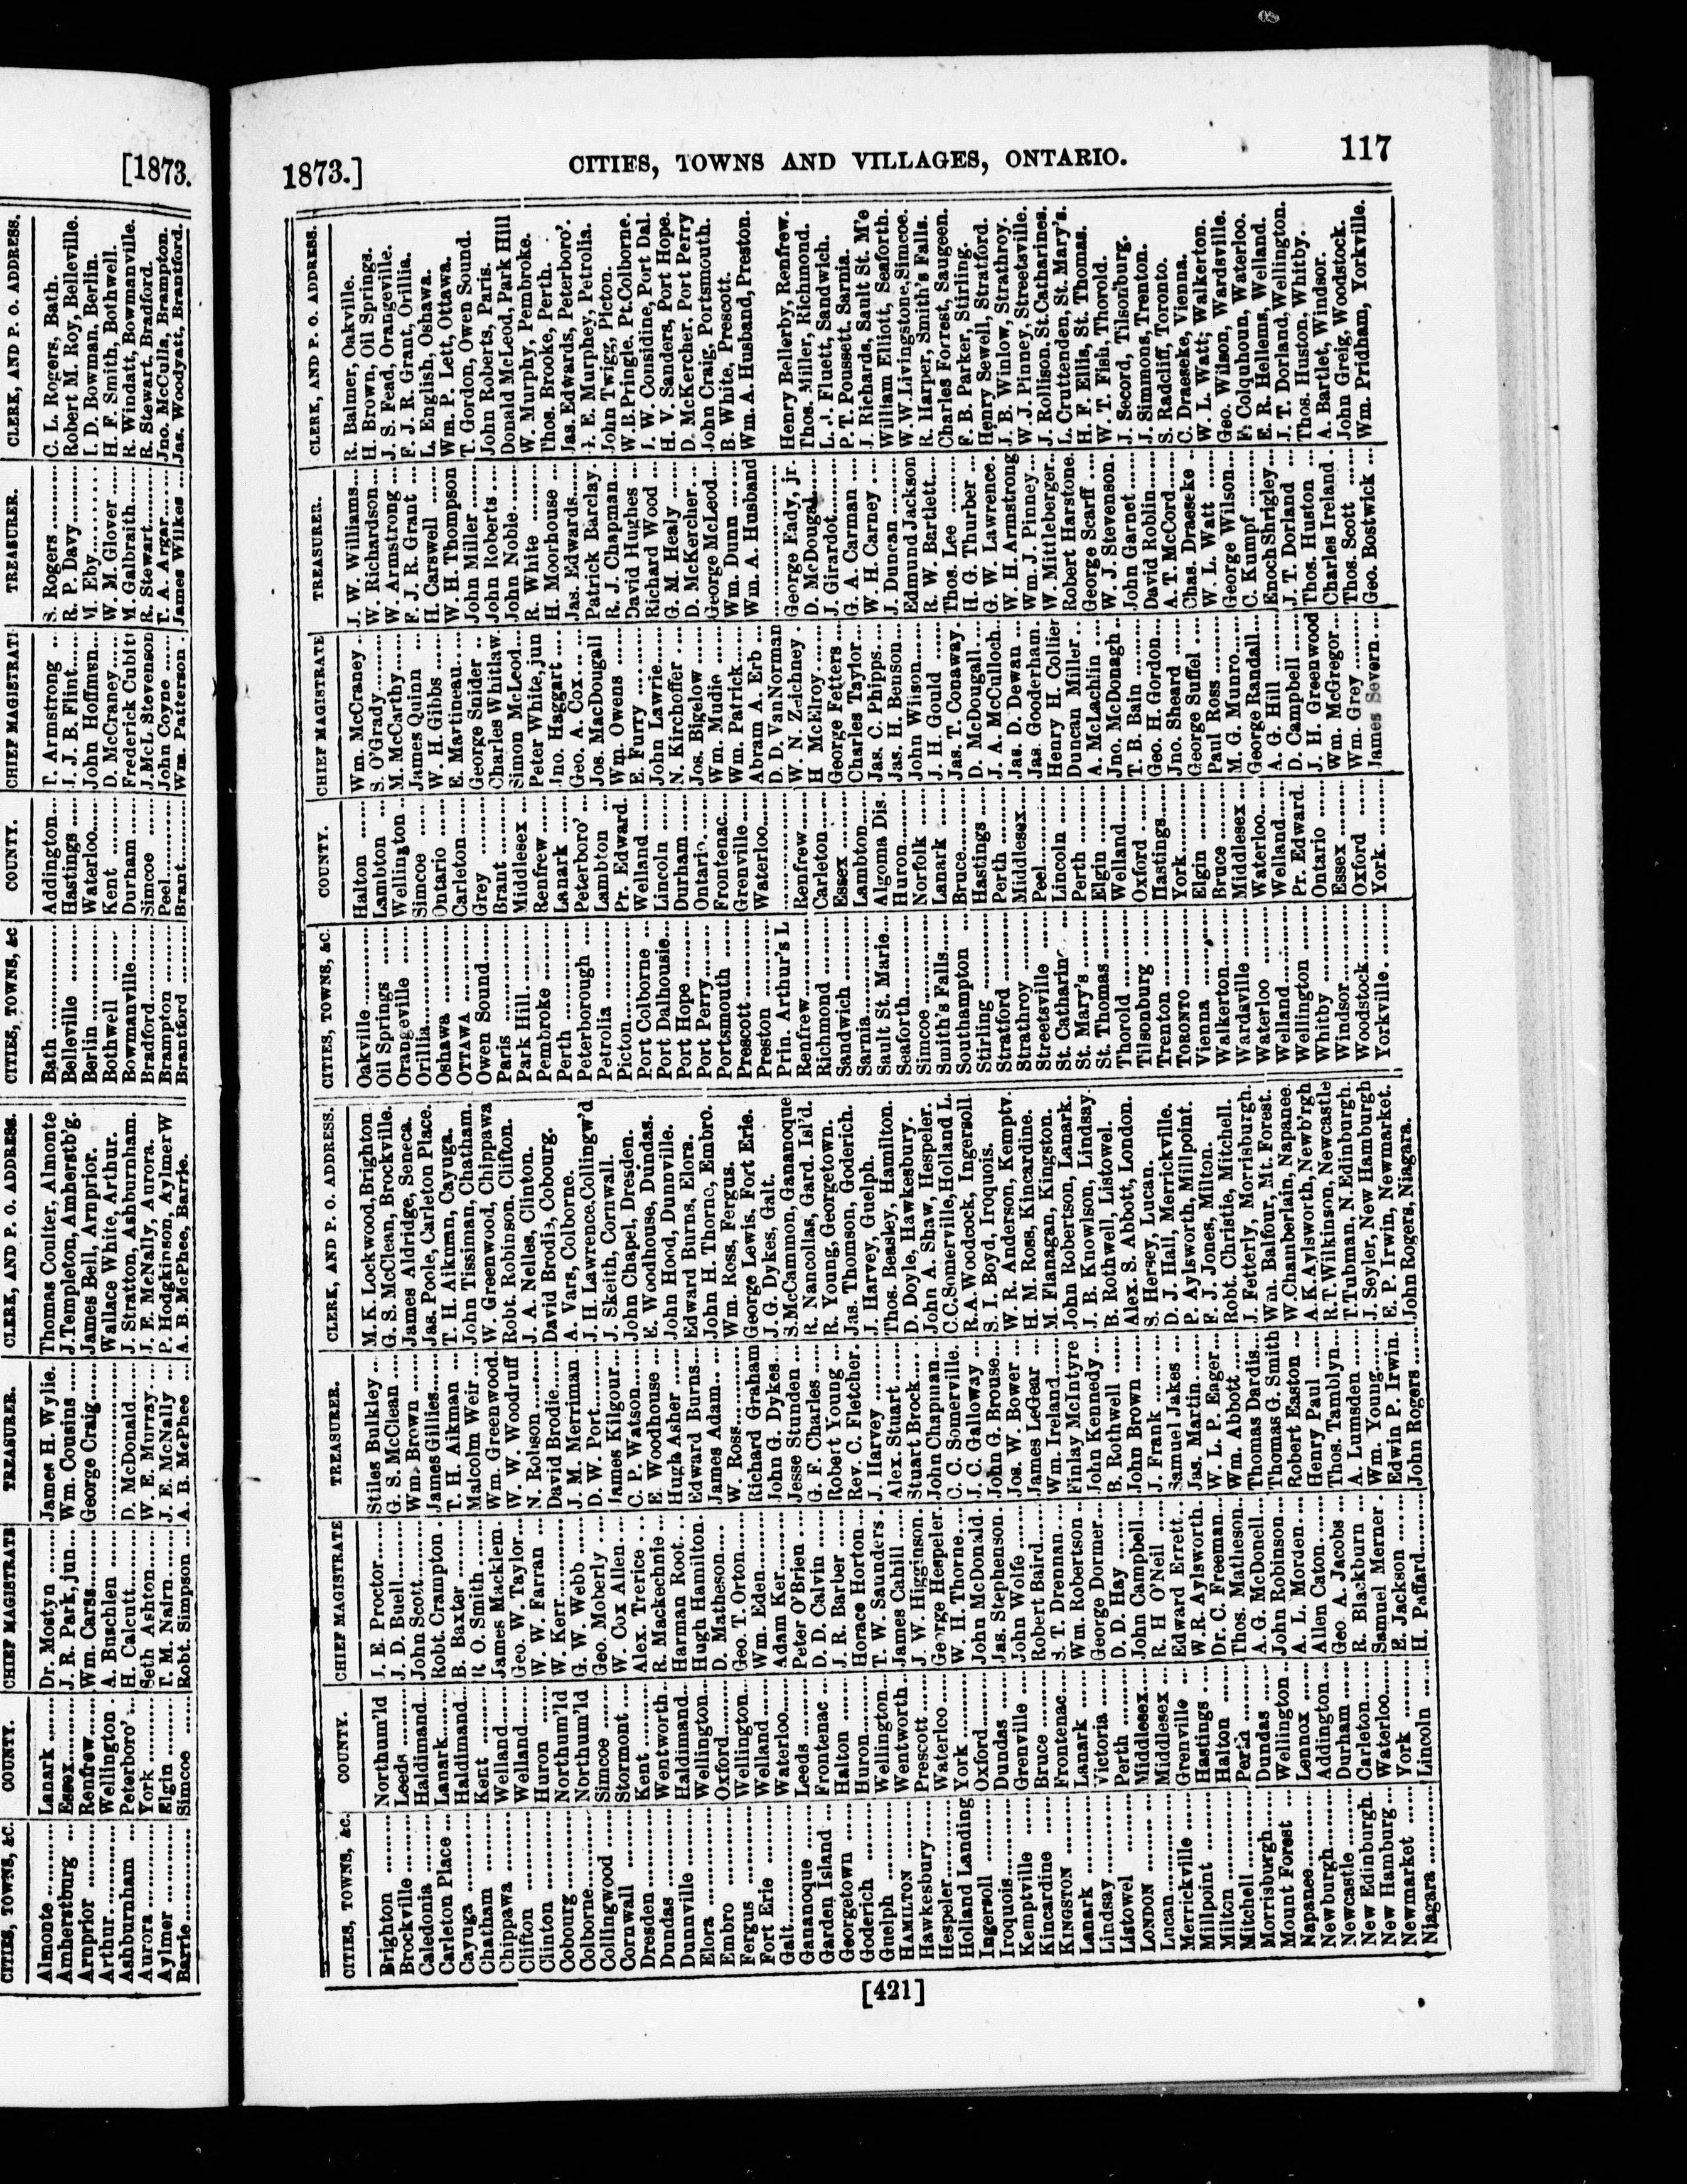 [1873.
CITIES, TOWNS, &C. COUNTY. CHIEF MAGISTRATE TREASURER. CLERK, AND P. O. ADDRESS.
Almonte Lanark Dr. Mostyn James H. Wylie. Thomas Coulter, Almonte
Amherstburg Essex J. R. Park, jun Wm. Cousins J. Templeton, Amherstb'g.
Arnprior Renfrew Wm. Carss George Craig James Bell, Arnprior.
Arthur Wellington A. Buschlen Wallace White, Arthur.
Ashburnham Peterboro' H. Calcutt D. McDonald J. Stratton, Ashburnham.
Aurora York Seth Ashton W. E. Murray J. E. McNally, Aurora.
Aylmer Elgin T. M. Nairn J. E. McNally P. Hodgkinson, Aylmer W
Barrie Simcoe Robt. Simpson A. B. McPhee A. B. McPhee, Barrie.
CITIES, TOWNS, &C COUNTY. CHIEF MAGISTRATE TREASURER. CLERK, AND P. O. ADDRESS.
Bath Addington T. Armstrong S. Rogers C. L. Rogers, Bath.
Belleville Hastings J. J. B. Flint R. P. Davy Robert M. Roy, Belleville.
Berlin Waterloo John Hoffmen M. Eby I. D. Bowman, Berlin.
Bothwell Kent D. McCraney W. M. Glover H. F. Smith, Bothwell.
Bowmanville Durham Frederick Cubitt M. Galbraith R. Windatt, Bowmanville.
Bradford Simcoe J. McL Stevenson R. Stewart R. Stewart, Bradford.
Brampton Peel John Coyne T. A. Argar Jno. McCulla, Brampton.
Brantford Brant Wm. Patterson James Wilkes Jas. Woodyatt, Brantford.
1873.] CITIES, TOWNS AND VILLAGES, ONTARIO. 117
CITIES, TOWNS, &C. COUNTY. CHIEF MAGISTRATE TREASURER. CLERK, AND P. O. ADDRESS.
Brighton Northum'ld J. E. Proctor Stiles Bulkley M. K. Lockwood, Brighton
Brockville Leeds J. D. Buell G. S. McClean G. S. McClean, Brockville.
Caledonia Haldimand John Scott Wm. Brown James Aldridge, Seneca.
Carleton Place Lanark Robt. Crampton James Gillies Jas. Poole, Carleton Place.
Cayuga Haldimand B. Baxter T. H. Aikman T. H. Aikman, Cayuga.
Chatham Kent R. O. Smith Malcolm Weir John Tissiman, Chatham.
Chippawa Welland James Macklem Wm. Greenwood W. Greenwood, Chippawa
Clifton Welland Geo. W. Taylor W. W. Woodruff Robt. Robinson, Clifton.
Clinton Huron W. W. Farran N. Robson J. A. Nelles, Clinton.
Cobourg Northum'ld W. Kerr David Brodie David Brodie, Cobourg.
Colborne Northum'ld G. W. Webb J. M. Merriman A. Vars, Colborne.
Collingwood Simcoe Geo. Moberly D. W. Port J. H. Lawrence, Collingw'd
Cornwall Stormont W. Cox Allen James Kilgour J. Skeith, Cornwall.
Dresden Kent Alex. Trerice C. P. Watson John Chapel, Dresden.
Dundas Wentworth R. Mackechnie E. Woodhouse E. Woodhouse, Dundas.
Dunnville Haldimand Harman Root Hugh Asher John Hood, Dunnville.
Elora Wellington Hugh Hamilton Edward Burns Edward Burns, Elora.
Embro Oxford D. Matheson James Adam John H. Thorne, Embro.
Fergus Wellington Geo. T. Orton W. Ross Wm. Ross, Fergus.
Fort Erie Welland Wm. Eden Richard Graham George Lewis, Fort Erie.
Galt Waterloo Adam Ker John G. Dykes J. G. Dykes, Galt.
Gananoque Leeds Peter O'Brien Jesse Stunden S. McCammon, Gananoque
Garden Island Frontenac D. D. Calvin G. F. Charles R. Nancollas, Gard. Isl'd.
Georgetown Halton J. R. Barber Robert Young R. Young, Georgetown.
Goderich Huron Horace Horton Rev. C. Fletcher Jas. Thomson, Goderich.
Guelph Wellington T. W. Saunders J. Harvey J. Harvey, Guelph.
HAMILTON Wentworth James Cahill Alex. Stuart Thos. Beasley, Hamilton.
Hawkesbury Prescott J. W. Higginson Stuart Brock D. Doyle, Hawkesbury.
Hespeler Waterloo George Hespeler John Chapman John A. Shaw, Hespeler.
Holland Landing York W. H. Thorne C. C. Somerville C.C. Somerville, Holland L.
Ingersoll Oxford John McDonald J. C. Galloway R.A. Woodcock, Ingersoll
Iroquois Dundas Jas. Stephenson John G. Brouse S. I. Boyd, Iroquois.
Kemptville Grenville John Wolfe Jos. W. Bower W. R. Anderson, Kemptv.
Kincardine Bruce Robert Baird James LeGear H. M. Ross, Kincardine.
KINGSTON Frontenac S. T. Drennan Wm. Ireland M. Flanagan, Kingston.
Lanark Lanark Wm. Robertson Finlay McIntyre John Robertson, Lanark.
Lindsay Victoria George Dormer John Kennedy J. B. Knowlson, Lindsay.
Listowel Perth D. D. Hay B. Rothwell B. Rothwell, Listowel.
LONDON Middlesex John Campbell John Brown Alex. S. Abbott, London.
Lucan Middlesex R. H O'Neil J. Frank S. Hersey, Lucan.
Merrickville Grenville Edward Errett Samuel Jakes D. J. Hall, Merrickville.
Millpoint Hastings W.R. Aylsworth Jas. Martin P. Aylsworth, Millpoint.
Milton Halton Dr. C. Freeman W. L. P. Eager F. J. Jones, Milton.
Mitchell Perth Thos. Matheson Wm. Abbott Robt. Christie, Mitchell.
Morrisburgh Dundas A. G. McDonell Thomas Dardis J. Fetterly, Morrisburgh.
Mount Forest Wellington John Robinson Thomas G. Smith Wm. Balfour, Mt. Forest.
Napanee Lennox A. L. Morden Robert Easton W. Chamberlain, Napanee
Newburgh Addington Allen Caton Henry Paul A.K. Aylsworth, Newb'rgh
Newcastle Durham Geo. A. Jacobs Thos. Tamblyn R.T. Wilkinson, Newcastle
New Edinburgh Carleton R. Blackburn A. Lumsden T. Tubman, N. Edinburgh.
New Hamburg Waterloo Samuel Merner Wm. Young J. Seyler, New Hamburgh
Newmarket York E. Jackson Edwin P. Irwin E. P. Irwin, Newmarket.
Niagara Lincoln H. Paffard John Rogers John Rogers, Niagara.
CITIES, TOWNS, &C. COUNTY. CHIEF MAGISTRATE TREASURER. CLERK, AND P. O. ADDRESS.
Oakville Halton Wm. McCraney J. W. Williams R. Balmer, Oakville.
Oil Springs Lambton S. O'Grady W. Richardson H. Brown, Oil Springs.
Orangeville Wellington M. McCarthy W. Armstrong J. S. Fead, Orangeville.
Orillia Simcoe James Quinn F. J. R. Grant F. J. R. Grant, Orillia.
Oshawa Ontario W. H. Gibbs H. Carswell L. English, Oshawa.
OTTAWA Carleton E. Martineau W. H. Thompson Wm. P. Lett, Ottawa.
Owen Sound Grey George Snider John Miller T. Gordon, Owen Sound.
Paris Brant Charles Whitlaw John Roberts John Roberts, Paris.
Park Hill Middlesex Simon McLeod John Noble Donald McLeod, Park Hill
Pembroke Renfrew Peter White, jun R. White W. Murphy, Pembroke.
Perth Lanark Jno. Haggart H. Moorhouse Thos. Brooke, Perth.
Peterborough Peterboro' Geo. A. Cox Jas. Edwards Jas. Edwards, Peterboro'.
Petrolia Lambton Jos. MacDougall Patrick Barclay J. E. Murphey, Petrolia.
Picton Pr. Edward Wm. Owens R. J. Chapman John Twigg, Picton.
Port Colborne Welland E. Furry David Hughes W.B. Pringle, Pt. Colborne.
Port Dalhousie Lincoln John Lawrie Richard Wood J. W. Considine, Port Dal.
Port Hope Durham N. Kirchoffer G. M. Healy H. V. Sanders, Port Hope.
Port Perry Ontario Jos. Bigelow D. McKercher D. McKercher, Port Perry
Portsmouth Frontenac Wm. Mudie George McLeod John Craig, Portsmouth.
Prescott Grenville Wm. Patrick Wm. Dunn B. White, Prescott.
Preston Waterloo Abram A. Erb Wm. A. Husband Wm. A. Husband, Preston.
Prin. Arthur's L D. D. VanNorman
Renfrew Renfrew W. N. Zeichney George Eady, jr Henry Bellerby, Renfrew.
Richmond Carleton H McElroy D. McDougal Thos. Miller, Richmond.
Sandwich Essex George Fetters J. Girardot L. J. Fluett, Sandwich.
Sarnia Lambton Charles Taylor G. A. Carman P. T. Poussett, Sarnia.
Sault St. Marie Algoma Dis. Jas. C. Phipps W. H. Carney J. Richards, Sault St. M'e
Seaforth Huron Jas. H. Benson J. Duncan William Elliott, Seaforth.
Simcoe Norfolk John Wilson Edmund Jackson W.W. Livingstone, Simcoe.
Smith's Falls Lanark J. H. Gould R. W. Bartlett R. Harper, Smith's Falls.
Southampton Bruce Jas. T. Conaway Thos. Lee Charles Forrest, Saugeen.
Stirling Hastings D. McDougall H. G. Thurber F. B. Parker, Stirling.
Stratford Perth J. A. McCulloch G. W. Lawrence Henry Sewell, Stratford.
Strathroy Middlesex Jas. D. Dewan W. H. Armstrong J. B. Winlow, Strathroy.
Streetsville Peel Jas. Gooderham Wm. J. Pinney W. J. Pinney, Streetsville.
St. Catharine Lincoln Henry H. Collier W. Mittleberger J. Rollison, St. Catharines.
St. Mary's Perth Duncan Miller Robert Harstone L. Cruttenden, St. Mary's.
St. Thomas Elgin A. McLachlin George Scarff H. F. Ellis, St. Thomas.
Thorold Welland Jno. McDonagh W. J. Stevenson W. T. Fish, Thorold.
Tilsonburg Oxford T. B. Bain John Garnet J. Secord, Tilsonburg.
Trenton Hastings Geo. H. Gordon David Roblin J. Simmons, Trenton.
TORONTO York Jno. Sheard A. T. McCord S. Radcliff, Toronto.
Vienna Elgin George Suffel Chas. Draeseke C. Draeseke, Vienna.
Walkerton Bruce Paul Ross W. L. Watt W. L. Watt, Walkerton.
Wardsville Middlesex M. G. Munro George Wilson Geo. Wilson, Wardsville.
Waterloo Waterloo George Randall C. Kumpf F. Colquhoun, Waterloo.
Welland Welland A. G. Hill Enoch Shrigley E. R. Hellems, Welland.
Wellington Pr. Edward D. Campbell J. T. Dorland J. T. Dorland, Wellington.
Whitby Ontario J. H. Greenwood Thos. Huston Thos. Huston, Whitby.
Windsor Essex Wm. McGregor Charles Ireland A. Bartlet, Windsor.
Woodstock Oxford Wm. Grey Thos. Scott John Greig, Woodstock.
Yorkville York James Severn Geo. Bostwick Wm. Pridham, Yorkville.
[421]